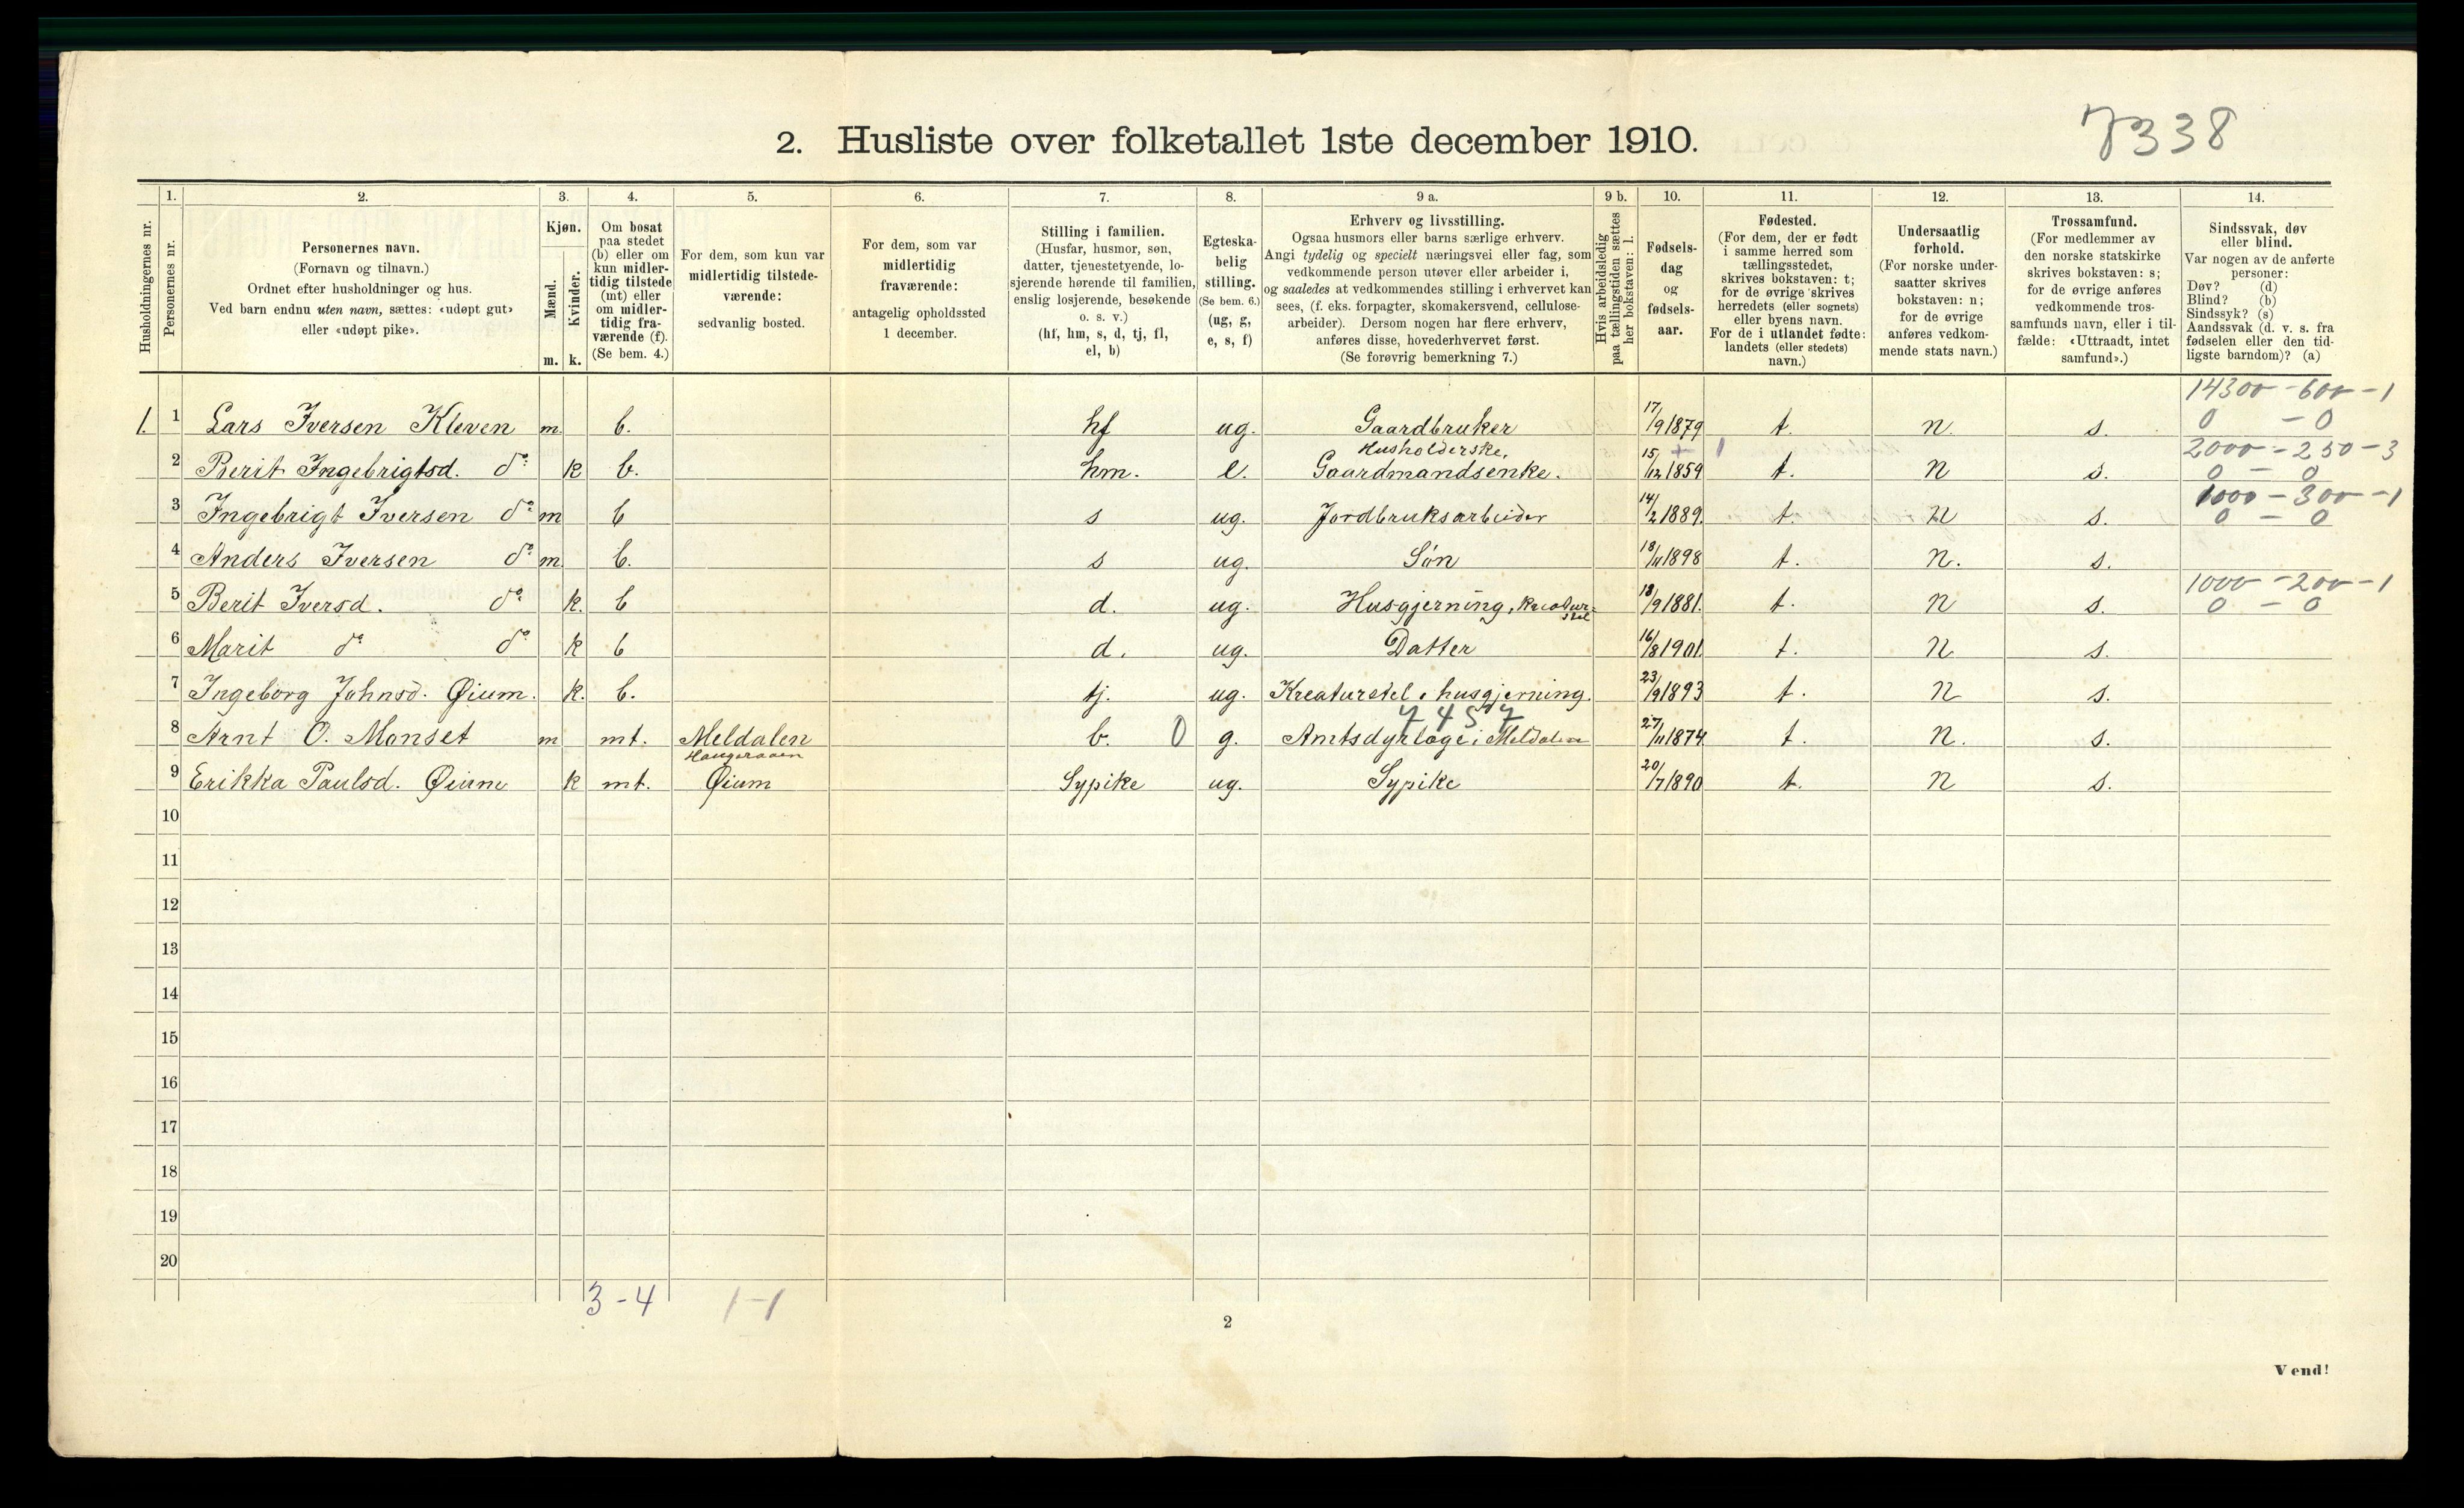 7338
2. Husliste over folketallet 1ste december 1910.
Husholdningernes nr.
1.
Personernes nr.
2.
Personernes navn.
(Fornavn og tilnavn.)
Ordnet efter husholdninger og hus.
Ved barn endnu uten navn, sættes: «udøpt gut»
eller «udøpt pike».
3.
Kjøn.
Mænd.
Kvinder.
m. k.
4.
Om bosat
paa stedet
(b) eller om
kun midler-
tidig tilstede
(mt) eller
om midler-
tidig fra-
værende (f).
(Se bem. 4.)
5.
For dem, som kun var
midlertidig tilstede-
værende:
sedvanlig bosted.
6.
For dem, som var
midlertidig
fraværende:
antagelig opholdssted
1 december.
7.
Stilling i familien.
(Husfar, husmor, søn,
datter, tjenestetyende, lo-
sjerende hørende til familien,
enslig losjerende, besøkende
o. s. v.)
(hf, hm, s, d, tj, fl,
el, b)
8.
Egteska-
belig
stilling.
(Se bem. 6.)
(ug, g,
e, s, f)
9 a.
Erhverv og livsstilling.
Ogsaa husmors eller barns særlige erhverv.
Angi tydelig og specielt næringsvei eller fag, som
vedkommende person utøver eller arbeider i,
og saaledes at vedkommendes stilling i erhvervet kan
sees, (f. eks. forpagter, skomakersvend, cellulose-
arbeider). Dersom nogen har flere erhverv,
anføres disse, hovederhvervet først.
(Se forøvrig bemerkning 7.)
9 b.
Hvis arbeidsledig
paa tællingstiden sættes
her bokstaven: l.
10.
Fødsels-
dag
og
fødsels-
aar.
11.
Fødested.
(For dem, der er født
i samme herred som
tællingsstedet,
skrives bokstaven: t;
for de øvrige skrives
herredets (eller sognets)
eller byens navn.
For de i utlandet fødte:
landets (eller stedets)
navn.)
12.
Undersaatlig
forhold.
(For norske under-
saatter skrives
bokstaven: n;
for de øvrige
anføres vedkom-
mende stats navn.)
13.
Trossamfund.
(For medlemmer av
den norske statskirke
skrives bokstaven: s;
for de øvrige anføres
vedkommende tros-
samfunds navn, eller i til-
fælde: «Uttraadt, intet
samfund».)
14.
Sindssvak, døv
eller blind.
Var nogen av de anførte
personer:
Døv? (d)
Blind? (b)
Sindssyk? (s)
Aandssvak (d. v. s. fra
fødselen eller den tid-
ligste barndom)? (a)
14300 - 600 - 1
1. 1 Lars Iversen Kleven m. b. hf ug. Gaardbruker 17/9 1879 t. n. s. 0 - 0
Husholderske, 2000 - 250 - 3
2 Berit Ingebrigtsd. do k b. hm. e. Gaardmandsenke. 15/12 1859 t. n s. 0 - 0
1000 - 300 - 1
3 Ingebrigt Iversen do m b s ug. Jordbruksarbeider 14/2 1889. t. n s. 0 - 0
4 Anders Iversen do m. b. s ug. Søn 18/11 1898 t. n. s.
1000 - 200 - 1
5 Berit Iversd. do k. b d. ug. Husgjerning, kreatur-
stel 18/9 1881. t. n s. 0 - 0
6 Marit do do k b d. ug. Datter 16/8 1901. t. n s.
7 Ingeborg Johnsd. Øium. k. b. tj. ug. Kreaturstel, husgjerning. 23/9 1893 t. n s.
7457
8 Arnt O. Monset m mt. Meldalen b. 0 g. Amtsdyrlæge i Meldalen 27/11 1874 t. n. s.
9 Erikka Paulsd. Øium k mt. Øium Sypike ug. Sypike 20/7 1890 t. n s.
10
11
12
13
14
15
16
17
18
19
20
3 - 4 1 - 1
2
Vend!